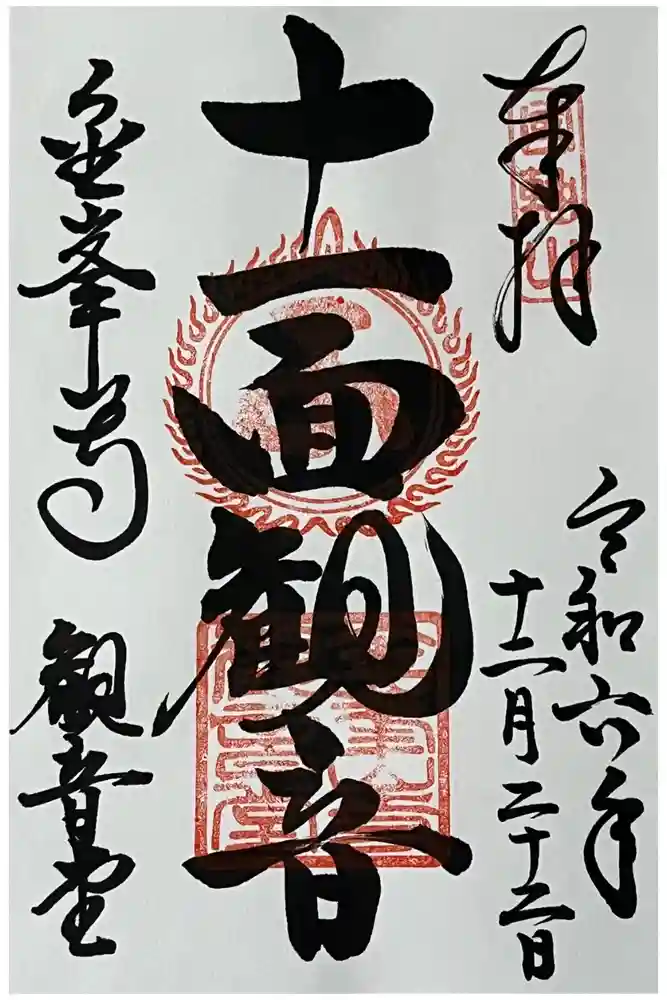 奉拝
令和六年
十二月二十二日
十一面観音
金峯寺 観音堂